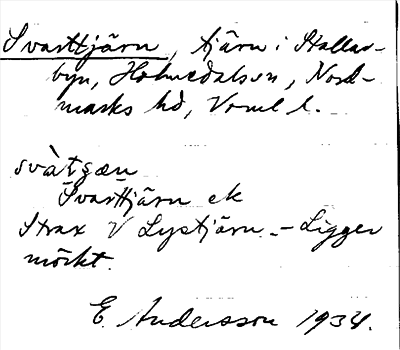 Svarttjärn, tjärn i Hallar-
byn, Holmedalssn, Nord-
marks hd, Vrml l.
svàtꞩæn
Svarttjärn ek
Strax V Lystjärn. - Ligger
mörkt.
E. Andersson 1934.